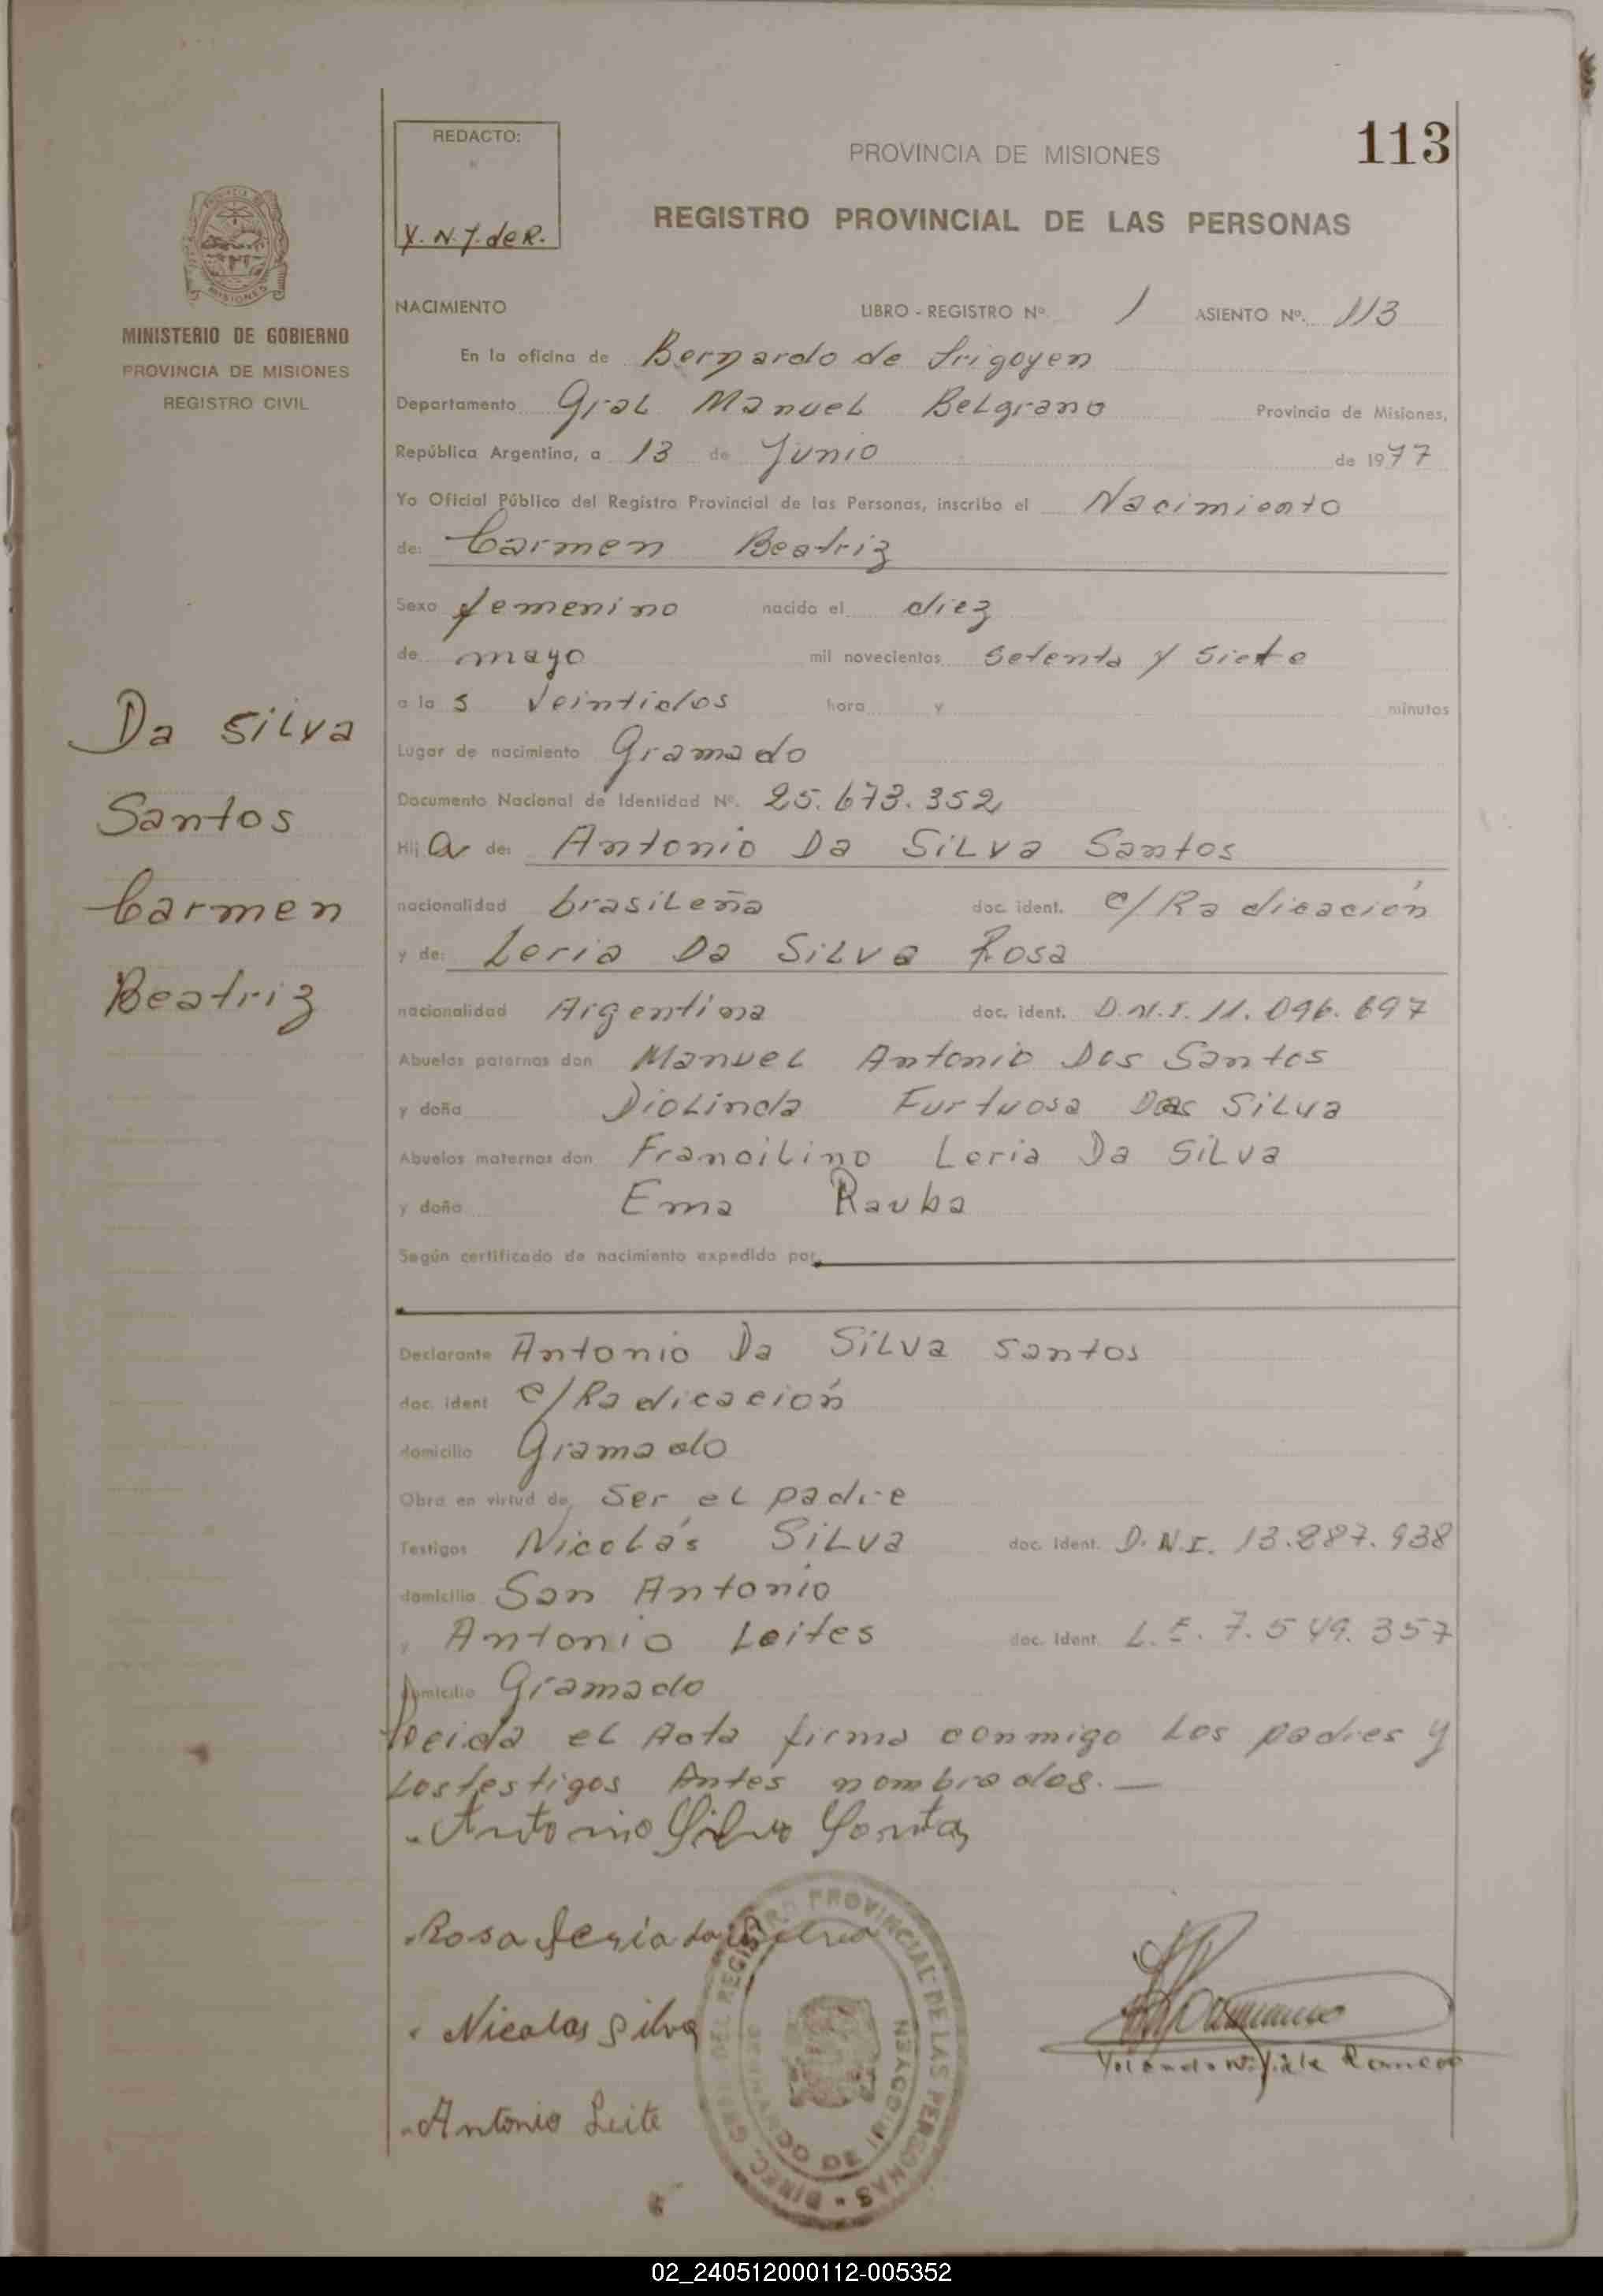 113
REDACTO:
Y. N. Y. de R.
PROVINCIA DE MISIONES
REGISTRO PROVINCIAL DE LAS PERSONAS
MISIONES
MINISTERIO DE GOBIERNO
PROVINCIA DE MISIONES
REGISTRO CIVIL
Da Silva
Santos
Carmen
Beatriz
NACIMIENTO LIBRO - REGISTRO Nº 1 ASIENTO Nº. 113
En la oficina de Bernardo de Irigoyen
Departamento Gral Manuel Belgrano Provincia de Misiones,
República Argentina, a 13 de Junio de 1977
Yo Oficial Público del Registro Provincial de las Personas, inscribo el Nacimiento
de: Carmen Beatriz
Sexo femenino nacido el diez
de mayo mil novecientos setenta y siete
a la s veintidos hora y minutos
Lugar de nacimiento Gramado
Documento Nacional de Identidad Nº. 25.673.352
Hij a de: Antonio Da Silva Santos
nacionalidad brasileña doc. ident. C/Radicación
y de: Leria Da Silva Rosa
nacionalidad Argentina doc. ident. D.N.I. 11.096.697
Abuelos paternos don Manuel Antonio Dos Santos
y doña Diolinda Furtuosa Das Silva
Abuelos maternos don Francilino Leria Da Silva
y doña Ema Rauba
Según certificado de nacimiento expedido por
Declarante Antonio Da Silva Santos
doc. ident C/Radicación
domicilio Gramado
Obra en virtud de, Ser el padre
Testigos Nicolás Silva doc. ident. D.N.I. 13.887.938
domicilio San Antonio
y Antonio Leites doc. ident. L.E. 7.549.357
domicilio Gramado
Leida el Acta firma conmigo los padres y
los testigos Antes nombrados.
Antonio Silva Santos
Rosa Leria da Silva
Nicolas Silva
Antonio Leite
DIREC. GRAL. DEL REGISTRO PROVINCIAL DE LAS PERSONAS
BERNARDO DE IRIGOYEN
Yolanda N. Romero
02_240512000112-005352